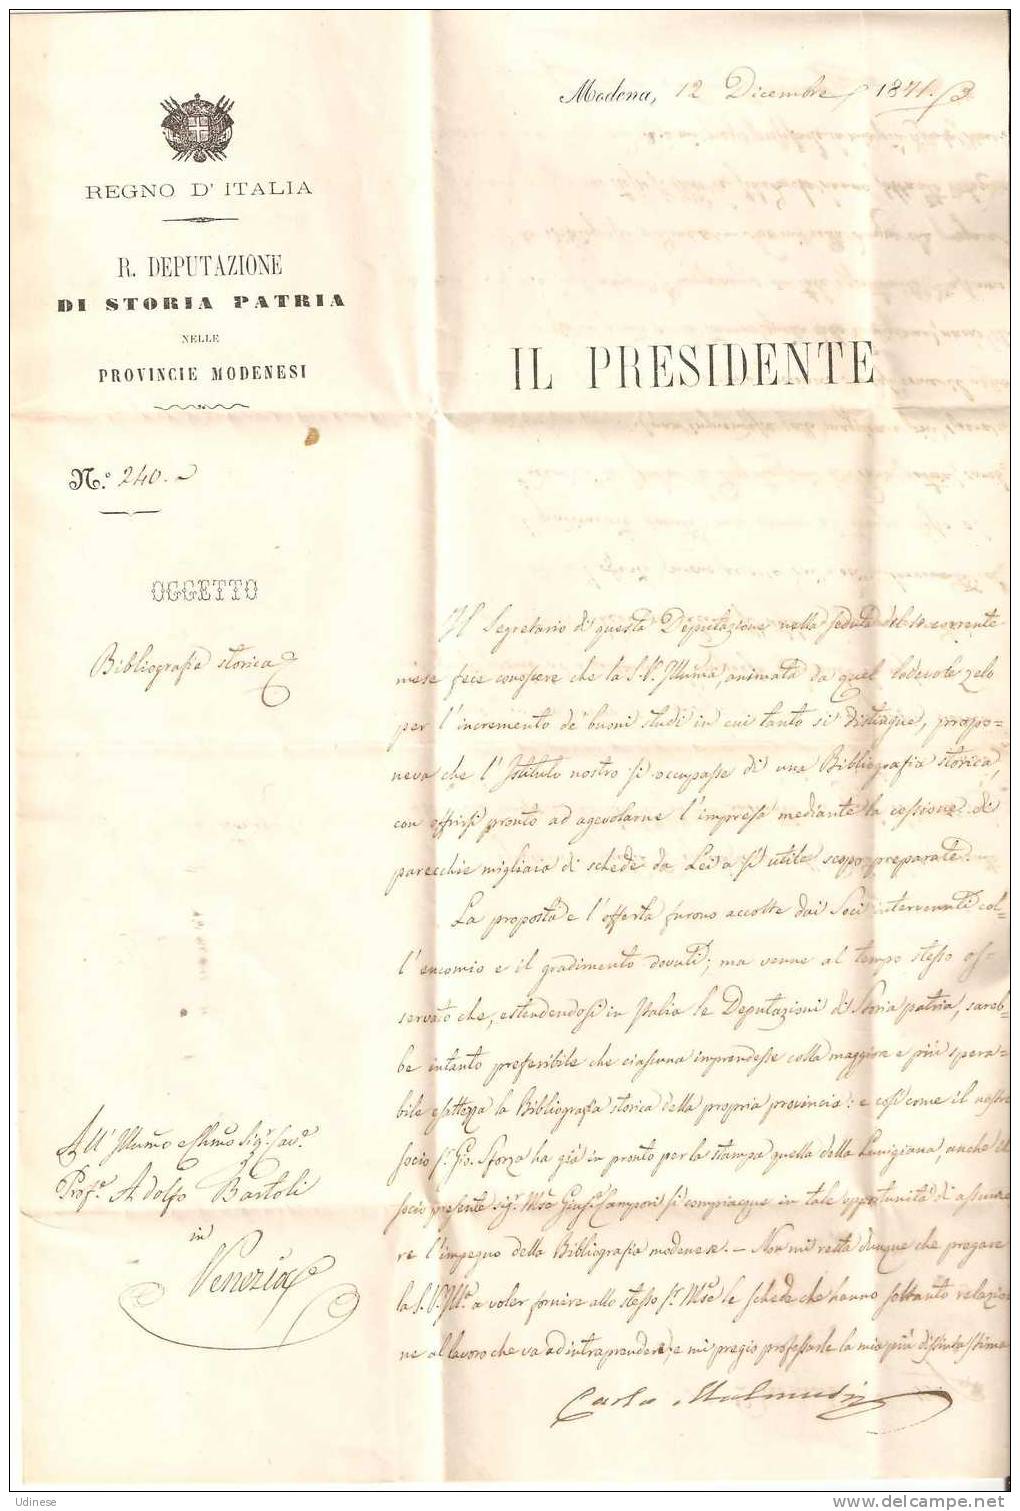 Modena, 12 Dicembre 1871.
REGNO D'ITALIA
R. DEPUTAZIONE
DI STORIA PATRIA
NELLE
PROVINCIE MODENESI
IL PRESIDENTE
N.° 240.
OGGETTO
Bibliografia storica
Il Segretario di questa Deputazione nella seduta del 10 corrente
mese fece conoscere che la S. V. Illma, animata da quel lodevole zelo
per l'incremento de' buoni studi in cui tanto si distingue, propo=
neva che l'Istituto nostro si occupasse di una Bibliografia storica,
con offrirsi pronto ad agevolarne l'impresa mediante la cessione di
parecchie migliaia di schede da Lei a sì utile scopo preparate.
La proposta e l'offerta furono accolte dai Soci intervenuti col=
l'encomio e il gradimento dovuti; ma venne al tempo stesso os=
servato che, estendendosi in Italia le Deputazioni di Storia patria, sareb=
be intanto preferibile che ciascuna imprendesse colla maggiore e più spera=
bile esattezza la Bibliografia storica della propria provincia: e così come il nostro
socio Sr. Gio. Sforza ha già in pronto per la stampa quella della Lunigiana, anche il
socio presente sigr. Mse Giusе. Campori si compiacque in tale opportunità di assume
re l'impegno della Bibliografia modenese. — Non mi resta dunque che pregare
la S. V. Illa. a voler fornire allo stesso Sr. Mse le schede che hanno soltanto relazio
ne al lavoro che va ad intraprendere, e mi pregio professarle la mia più distinta stima
Carlo Malmusi
All'Illumo e Chmo Sigr. Cave.
Profe. Adolfo Bartoli
in
Venezia
Udinese
www.delcampe.net